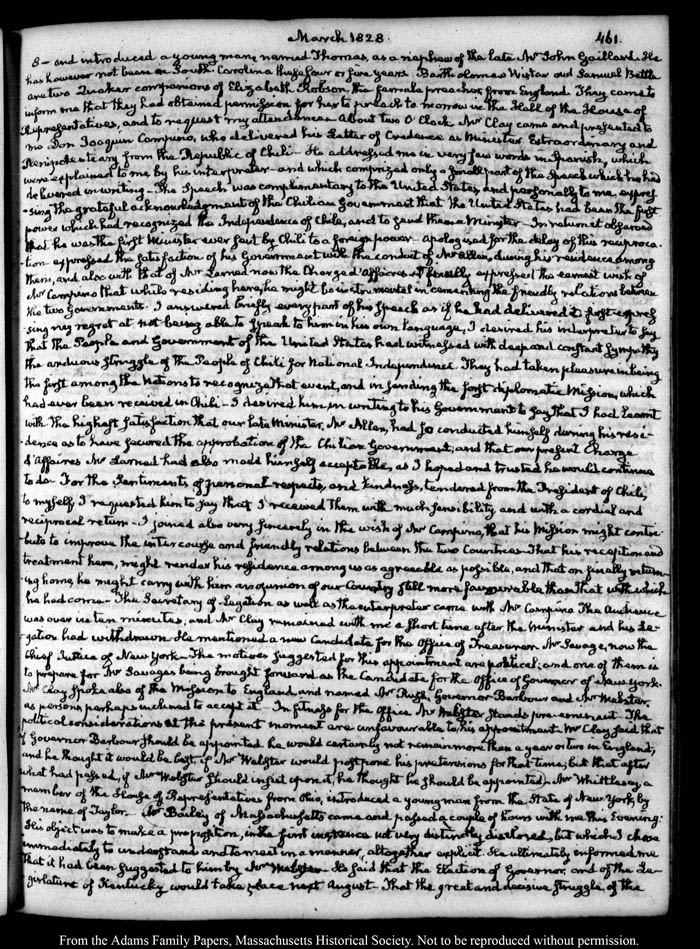 March 1828.
461.
8 — and introduced a young man, named Thomas, as a nephew of the late Mr John Gaillard. He
has however not been in South Carolina these four or five years. Bartholomew Wistar and Samuel Bettle
are two Quaker companions of Elizabeth Robson, the female preacher from England. They came to
inform me that they had obtained permission for her to preach to morrow in the Hall of the House of
Representatives, and to request my attendance. About two O'Clock Mr Clay came and presented to
me Don Joaquin Campino, who delivered his Letter of Credence as Minister Extraordinary and
Plenipotentiary from the Republic of Chili — He addressed me in very few words in Spanish, which
were explained to me by his interpreter — and which comprized only a small part of the Speech which he had
delivered in writing — The Speech was complimentary to the United States, and personally to me, expres
-sing the grateful acknowledgment of the Chilian Government that the United States had been the first
power which had recognized the Independence of Chile, and to send them a Minister — In return it observed
that he was the first Minister ever sent by Chili to a foreign power — apologized for the delay of this reciproca-
-tion — expressed the satisfaction of his Government with the conduct of Mr Allen, during his residence among
them, and also with that of Mr Larned now the Chargé d'Affaires. It finally expressed the earnest wish of
Mr Campino that while residing here, he might be instrumental in cementing the friendly relations between
the two Governments. I answered briefly every part of his Speech as if he had delivered it — first expres
sing my regret at not being able to speak to him in his own language, I desired his interpreter to say
that the People and Government of the United States had witnessed with deep and constant sympathy
the arduous struggle of the People of Chili for National Independence. They had taken pleasure in being
the first among the Nations to recognize that event, and in sending the first diplomatic Mission, which
had ever been received in Chili — I desired him in writing to his Government to say that I had learnt
with the highest satisfaction that our late Minister, Mr Allen, had so conducted himself during his resi-
-dence as to have secured the approbation of the Chilian Government; and that our present Chargé
d'Affaires Mr Larned had also made himself acceptable, as I hoped and trusted he would continue
to do — For the Sentiments of personal respect, and kindness, tendered from the President of Chili,
to myself, I requested him to say that I received them with much sensibility, and with a cordial and
reciprocal return — I joined also very sincerely in the wish of Mr Campino, that his Mission might contri-
-bute to improve the intercourse and friendly relations between the two Countries — That his reception and
treatment here, might render his residence among us as agreeable as possible, and that on finally return-
-ing home, he might carry with him an opinion of our Country still more favourable than that with which
he had come — The Secretary of Legation as well as the interpreter came with Mr Campino. The Audience
was over in ten minutes, and Mr Clay remained with me a short time after the Minister and his Le-
-gation had withdrawn. He mentioned a new Candidate for the Office of Treasurer. Mr Savage, now the
Chief Justice of New York — The motives suggested for this appointment are political; and one of them is
to prepare for Mr Savage's being brought forward as the Candidate for the Office of Governor of New York.
Mr Clay spoke also of the Mission to England, and named Mr Rush, Governor Barbour and Mr Webster,
as persons perhaps inclined to accept it — In fitness for the Office Mr Webster stands pre-eminent. The
political considerations at the present moment are unfavourable to his appointment. Mr Clay said that
if Governor Barbour should be appointed he would certainly not remain more than a year or two in England,
and he thought it would be best, if Mr Webster would postpone his pretensions for that time; but that after
what had passed, if Mr Webster should insist upon it, he thought he should be appointed. Mr Whittlesey, a
member of the House of Representatives from Ohio, introduced a young man from the State of New York, by
the name of Taylor. Mr Bailey of Massachusetts came and passed a couple of hours with me this Evening.
His object was to make a proposition, in the first instance not very distinctly disclosed, but which I chose
immediately to understand and to meet in a manner, altogether explicit. He ultimately informed me
that it had been suggested to him by Mr Webster — He said that the Election of Governor, and of the Le-
gislature of Kentucky would take place next August — That the great and decisive struggle of the
From the Adams Family Papers, Massachusetts Historical Society. Not to be reproduced without permission.